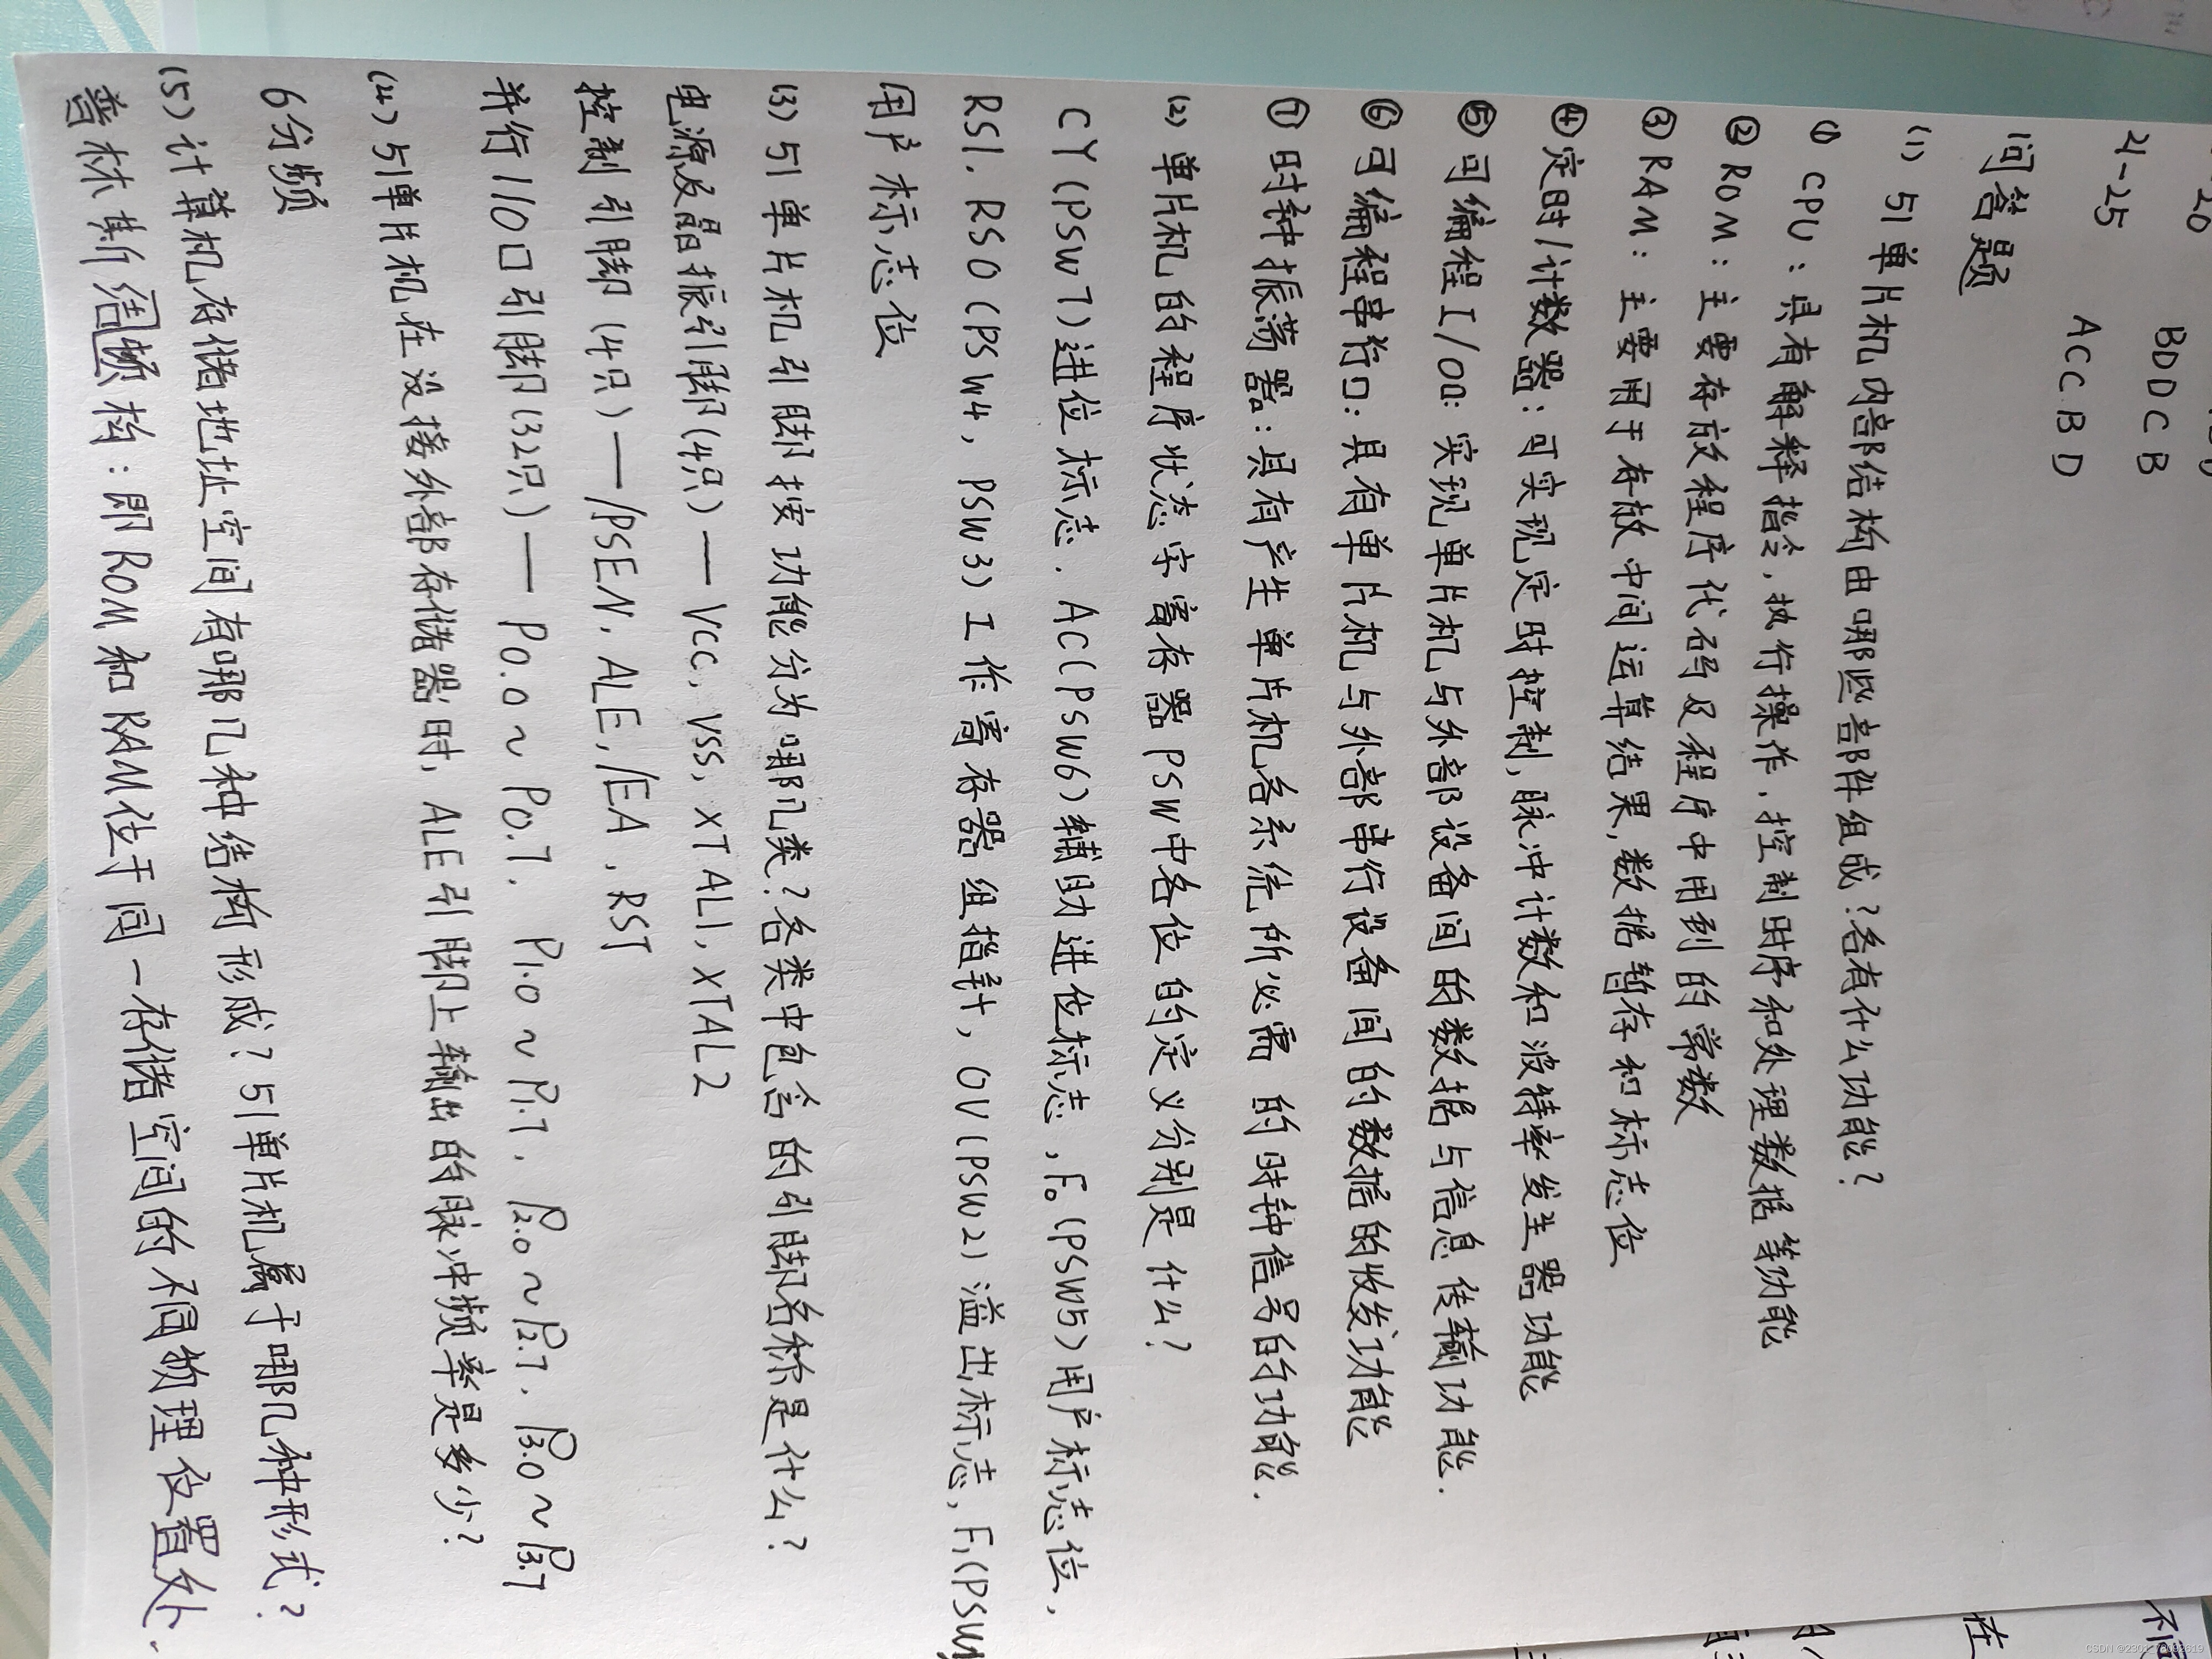 -20 BDDCB
21-25 ACCBD
问答题
(1) 51单片机内部结构由哪些部件组成?各有什么功能?
① CPU:具有解释指令,执行操作,控制时序和处理数据等功能
② ROM:主要存放程序代码及程序中用到的常数
③ RAM:主要用于存放中间运算结果,数据暂存和标志位
④ 定时/计数器:可实现定时控制,脉冲计数和波特率发生器功能
⑤ 可编程I/O口:实现单片机与外部设备间的数据与信息传输功能.
⑥ 可编程串行口:具有单片机与外部串行设备间的数据的收发功能
⑦ 时钟振荡器:具有产生单片机各系统所必需的时钟信号的功能.
(2) 单片机的程序状态字寄存器PSW中各位的定义分别是什么?
CY(PSW7)进位标志. AC(PSW6)辅助进位标志,F0(PSW5)用户标志位,
RS1.RS0(PSW4,PSW3)工作寄存器组指针,OV(PSW2)溢出标志,F1(PSW
用户标志位
(3) 51单片机引脚按功能分为哪几类?各类中包含的引脚名称是什么?
电源及晶振引脚(4只)——Vcc,Vss,XTAL1,XTAL2
控制引脚(4只)——/PSEN,ALE,/EA,RST
并行I/O口引脚(32只)——P0.0~P0.7,P1.0~P1.7,P2.0~P2.7,P3.0~P3.7
(4) 51单片机在没接外部存储器时,ALE引脚上输出的脉冲频率是多少?
6分频
(5) 计算机存储地址空间有哪几种结构形成?51单片机属于哪几种形式?
普林斯顿结构:即ROM和RAM位于同一存储空间的不同物理位置处.
不同
在
CSDN